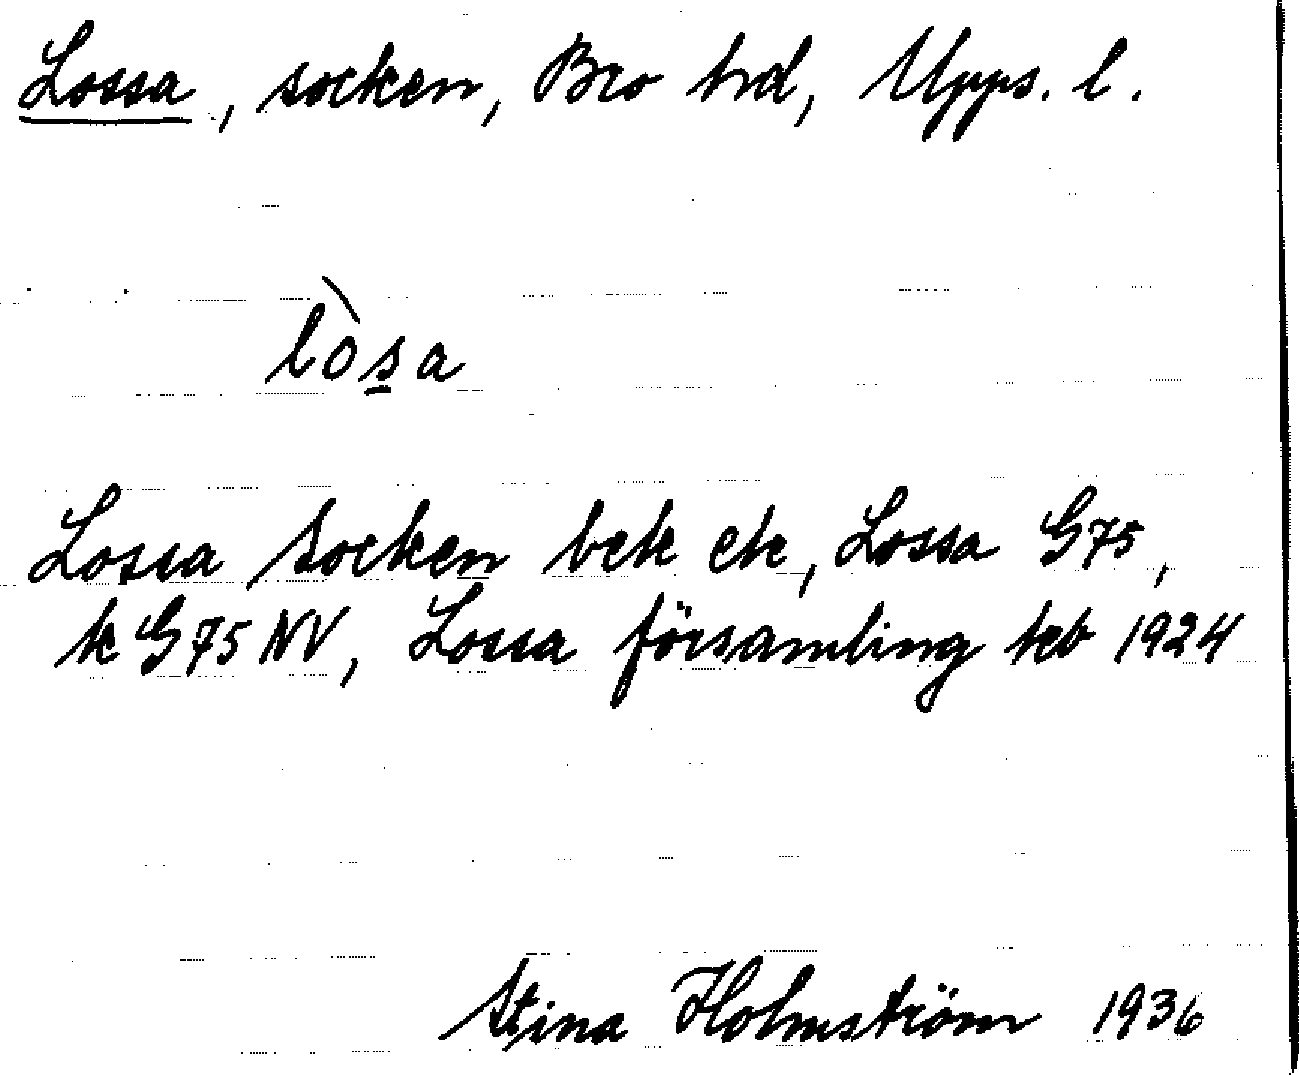 Lossa, socken, Bro hrd, Upps. l.
lòs̲a
Lossa Socken bek ek, Lossa G75,
k G75 NV, Lossa församling tkb 1924
Stina Holmström 1936